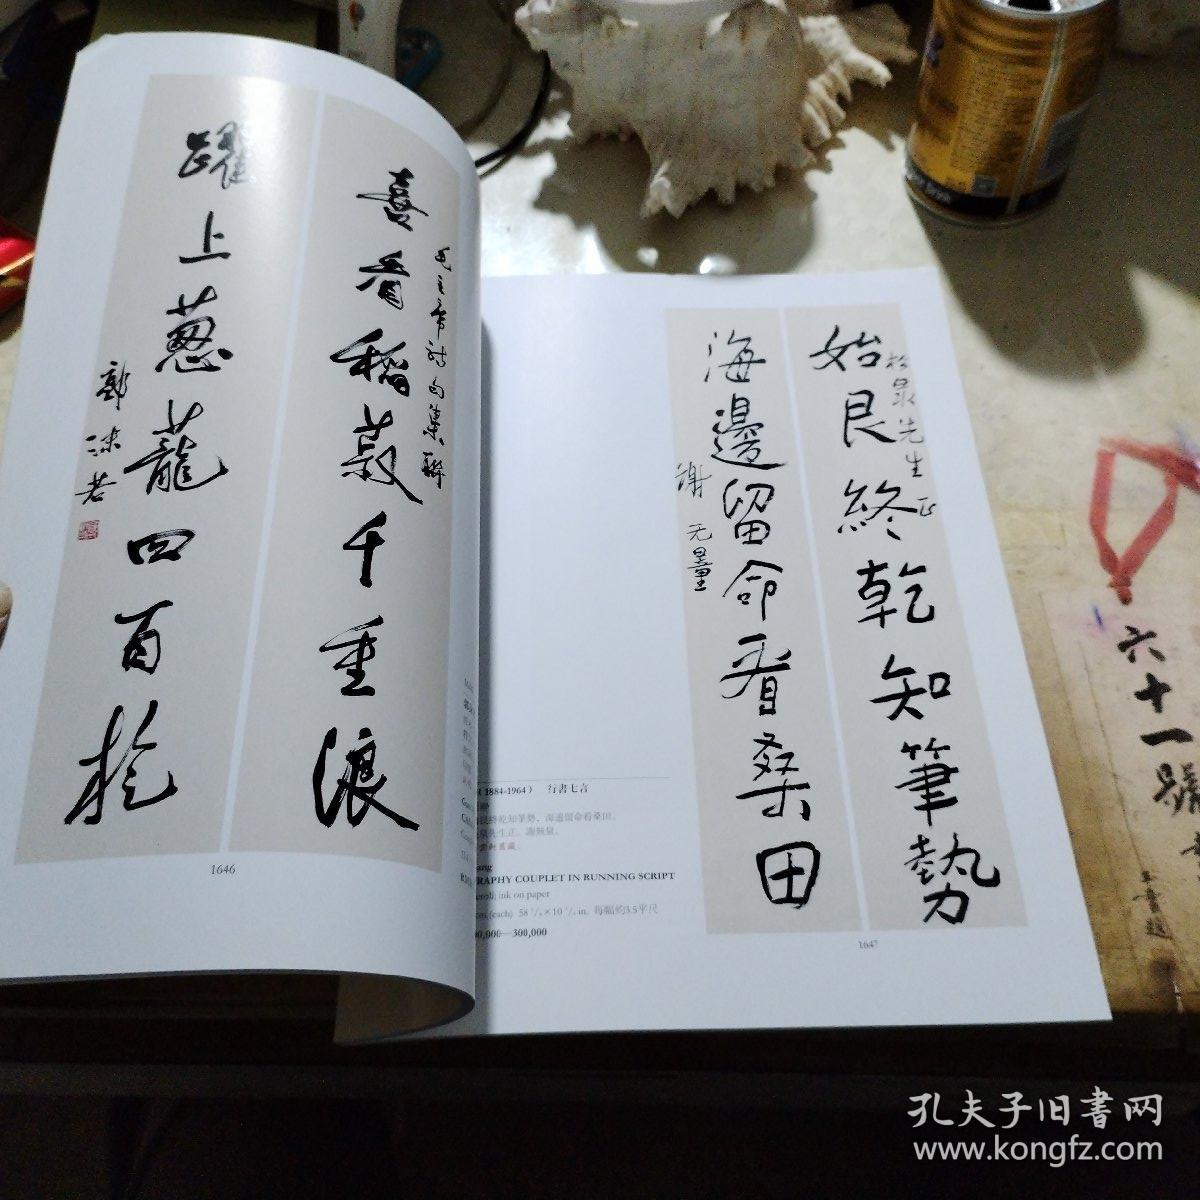 毛主席詩句集聯
喜看稻菽千重浪
躍上葱蘢四百旋
郭沫若
1646
始艮終乾知筆勢
海邊留命看桑田
謝无量
1647
1884-1964） 行書七言
終乾知筆勢，海邊留命看桑田。
先生正。謝無量。
RAPHY COUPLET IN RUNNING SCRIPT
ink on paper
(each) 58 × 10 in. 每幅約3.5平尺
00,000—300,000
六十一號
孔夫子旧書网
www.kongfz.com